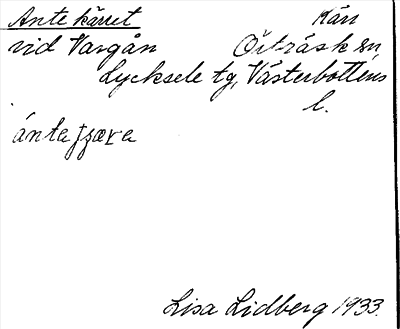 Antekärret Kärr
vid Vargån Örträsk sn,
Lycksele tg, Västerbottens
l.
ántaʃʒæra
Lisa Lidberg 1933.